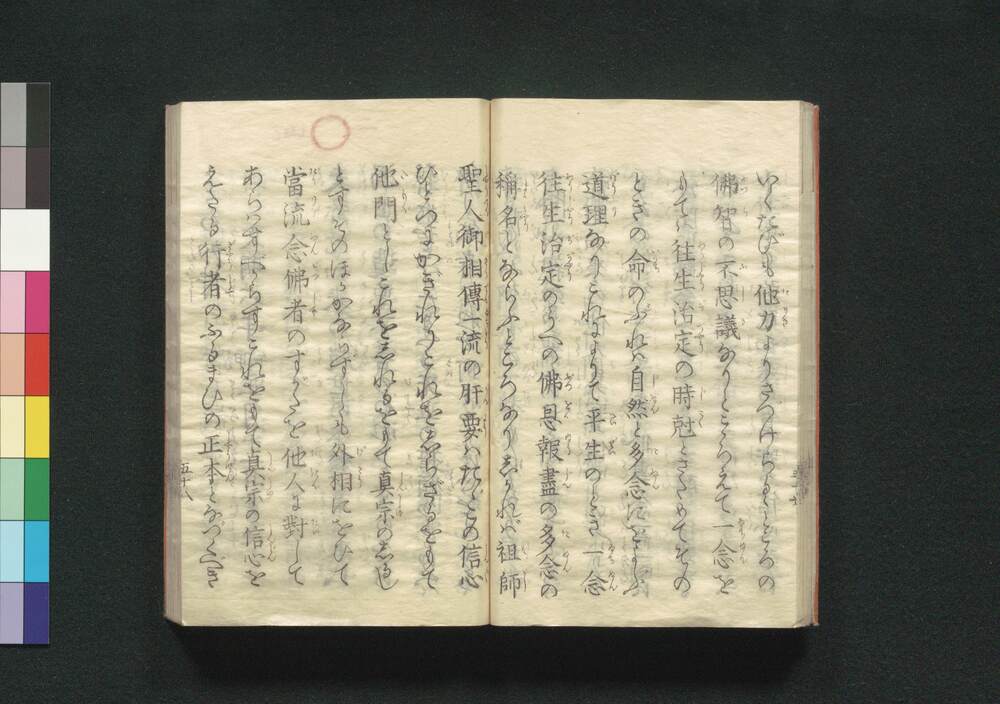 いくたびも他力よりさづけらるゝところの
佛智の不思議なりとこゝろえて一念を
もては往生治定の時尅とさだめてその
ときの命のぶれば自然と多念にをよぶ
道理なりこれによりて平生のとき一念
往生治定のうへの佛恩報盡の多念の
稱名とならふところなりしかれば祖師
聖人御相傳一流の肝要はたゞこの信心
ひとつにかぎれりこれをしらざるをもて
他門としこれをしれるをもて真宗のしるし
とすそのほかかならずしも外相にをひて
當流念佛者のすがたを他人に對して
あらはすべからずこれをもて真宗の信心を
えたる行者のふるまひの正本となづくべき
五十八